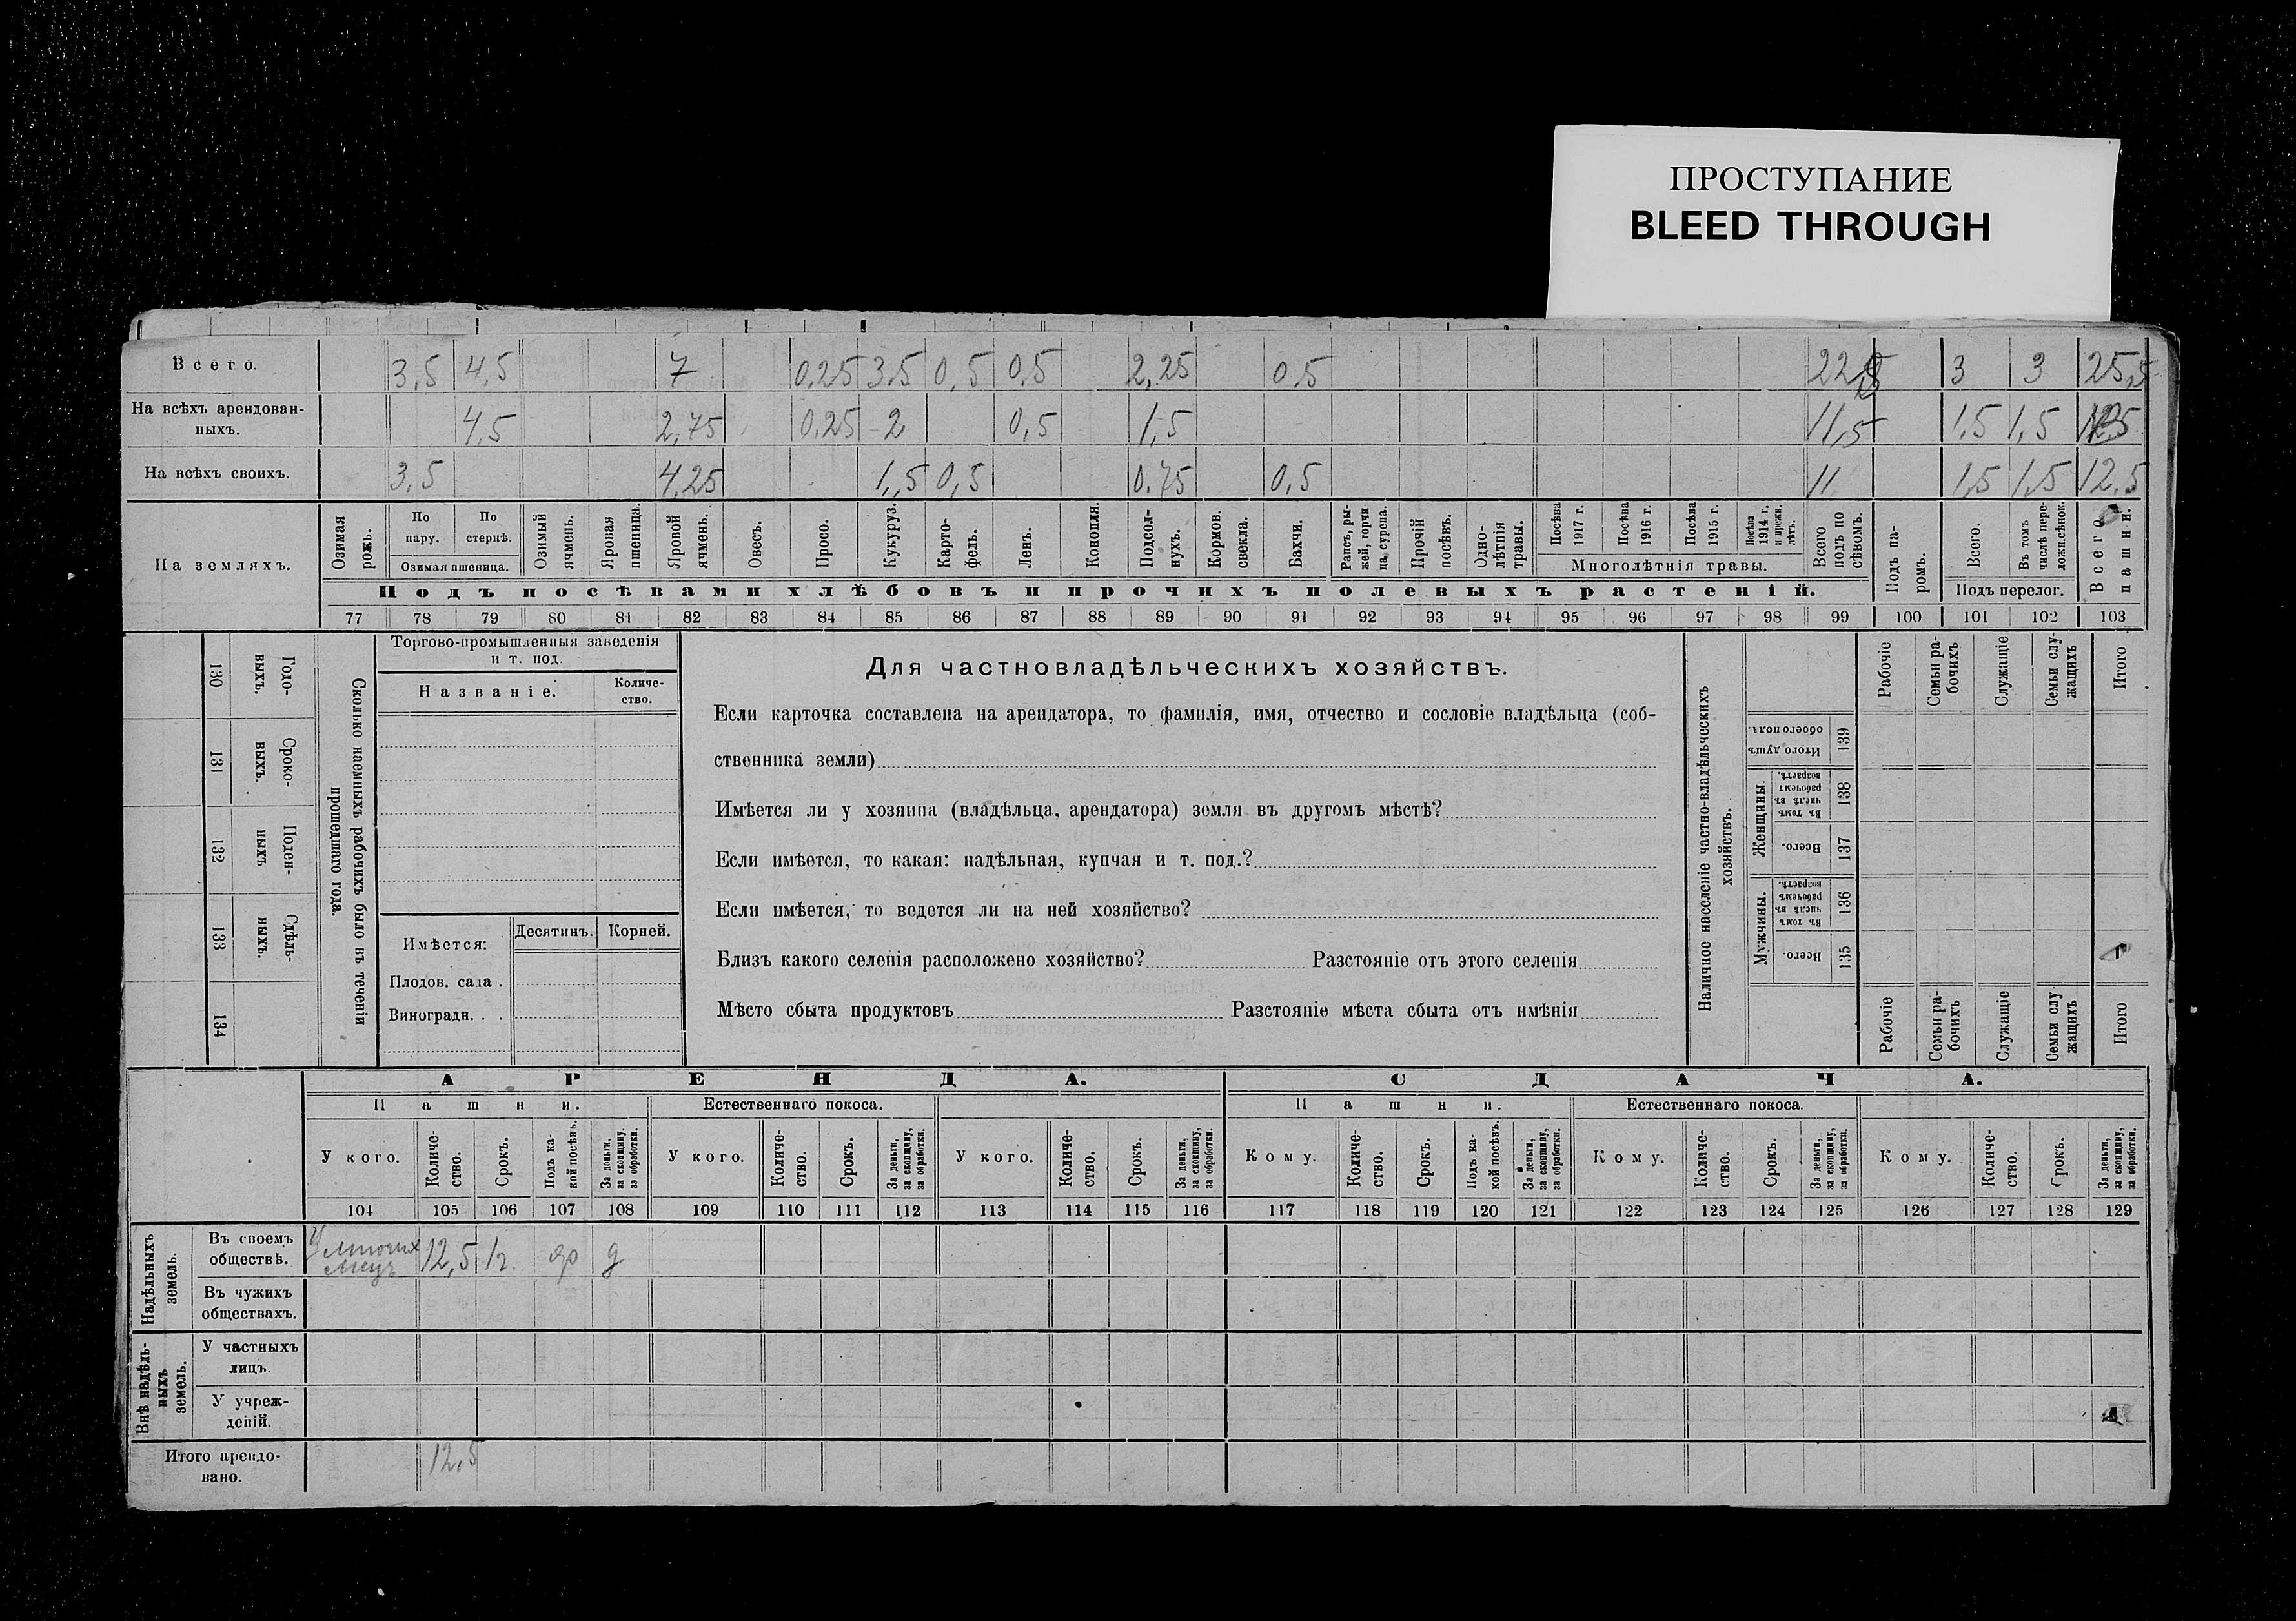 ПРОСТУПАНИЕ
BLEED THROUGH
Всего. 3,5 4,5 7 0,25 3,5 0,5 0,5 2,25 0,5 22,5 3 3 25,5
На всѣхъ арендован-
ныхъ. 4,5 2,75 0,25 2 0,5 1,5 11,5 1,5 1,5
На всѣхъ своихъ. 3,5 4,25 1,5 0,5 0,75 0,5 11 1,5 1,5 12,5
На земляхъ.
Озимая рожь.
По пару.
По стернѣ.
Озимая пшеница.
Озимый ячмень.
Яровая пшеница.
Яровой ячмень.
Овесъ.
Просо.
Кукуруз.
Карто-
фель.
Ленъ.
Конопля.
Подсол-
нухъ.
Кормов. свекла.
Бахчи.
Рапсъ, ры-
жей, горчи
ца, сурепа.
Прочій посѣвъ.
Одно-
лѣтнія травы.
Посѣва 1917 г.
Посѣва 1916 г.
Посѣва 1915 г.
Посѣва 1914 г. и прежн. лѣтъ.
Многолѣтнія травы.
Всего подъ по
сѣвомъ.
Подъ па-
ромъ.
Всего.
Въ томъ числѣ пере-
ложн.сѣнок.
Подъ перелог.
Всего пашни.
Подъ посѣвами хлѣбовъ и прочихъ полевыхъ растеній.
77 78 79 80 81 82 83 84 85 86 87 88 89 90 91 92 93 94 95 96 97 98 99 100 101 102 103
Сколько наемныхъ рабочихъ было въ теченіи
прошедшаго года.
Годо-
выхъ.
130
Сроко-
выхъ.
131
Поден-
ныхъ
132
Сдѣль-
ныхъ.
133
134
Торгово-промышленныя заведенія
и т. под.
Названіе.
Количе-
ство.
Имѣется:
Десятинъ.
Корней.
Плодов. сада .
Виноградн. . .
Для частновладѣльческихъ хозяйствъ.
Если карточка составлена на арендатора, то фамилія, имя, отчество и сословіе владѣльца (соб-
ственника земли)
Имѣется ли у хозяина (владѣльца, арендатора) земля въ другомъ мѣстѣ?
Если имѣется, то какая: надѣльная, купчая и т. под.?
Если имѣется, то ведется ли на ней хозяйство?
Близъ какого селенія расположено хозяйство? Разстояніе отъ этого селенія
Мѣсто сбыта продуктовъ Разстояніе мѣста сбыта отъ имѣнія
Наличное населеніе частно-владѣльческихъ
хозяйствъ.
Рабочіе
Семьи ра-
бочихъ
Служащіе
Семьи слу-
жащихъ
Итого
Итого душъ обоего пола.
139
Женщины.
Въ томъ числѣ въ рабочемъ возрастѣ.
138
Всего.
137
Мужчины.
Въ томъ числѣ въ рабочемъ возрастѣ.
136
Всего.
135
Рабочіе
Семьи ра-
бочихъ
Служащіе
Семьи слу
жащихъ
Итого
АРЕНДА. СДАЧА.
Пашни. Естественнаго покоса. Пашни. Естественнаго покоса.
У кого. Количе-
ство. Срокъ. Подъ ка-
кой посѣвъ. За деньги, за скопщину, за обработки.
У кого. Количе-
ство. Срокъ. За деньги, за скопщину, за обработки.
У кого. Количе-
ство. Срокъ. За деньги, за скопщину, за обработки.
Кому. Количе-
ство. Срокъ. Подъ ка-
кой посѣвъ. За деньги, за скопщину, за обработки.
Кому. Количе-
ство. Срокъ. За деньги, за скопщину, за обработки.
Кому. Количе-
ство. Срокъ. За деньги, за скопщину, за обработки.
104 105 106 107 108 109 110 111 112 113 114 115 116 117 118 119 120 121 122 123 124 125 126 127 128 129
Надѣльныхъ
земель.
Въ своемъ
обществѣ. У многих лицъ 12,5 1 г. яр д
Въ чужихъ
обществахъ.
Внѣ надѣль-
ныхъ
земель.
У частныхъ
лицъ.
У учреж-
деній.
Итого арендо-
вано. 12,5